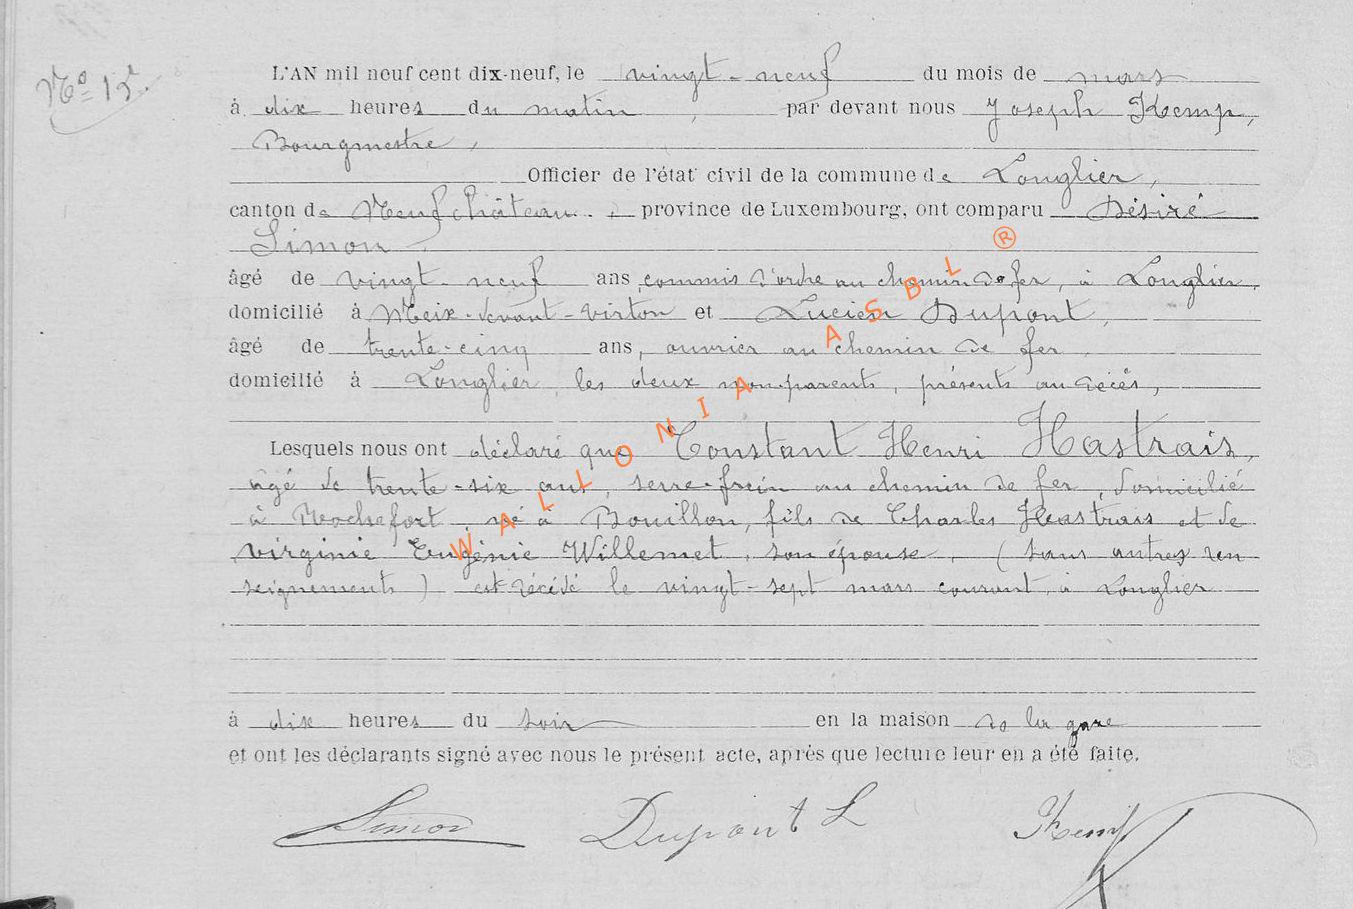 Nº 12.
L'AN mil neuf cent dix-neuf, le vingt-neuf du mois de mars
à dix heures du matin, par devant nous Joseph Kemp,
Bourgmestre,
Officier de l'état civil de la commune de Longlier,
canton de Neufchâteau, province de Luxembourg, ont comparu Désiré
Simon
âgé de vingt-neuf ans, commis d'ordre au chemin de fer, à Longlier,
domicilié à Meix-devant-Virton et Lucien Dupont,
âgé de trente-cinq ans, ouvrier au chemin de fer,
domicilié à Longlier, les deux non-parents, présents au décès,
Lesquels nous ont déclaré que Constant Henri Hastrais,
âgé de trente-six ans, serre-frein au chemin de fer, domicilié
à Rochefort, né à Bouillon, fils de Charles Hastrais et de
Virginie Eugénie Willemet, son épouse, (sans autres ren
seignements) est décédé le vingt-sept mars courant, à Longlier
à dix heures du soir en la maison de la gare
et ont les déclarants signé avec nous le présent acte, après que lecture leur en a été faite.
Simon Dupont L Kemp
WALLONIA ASBL ®